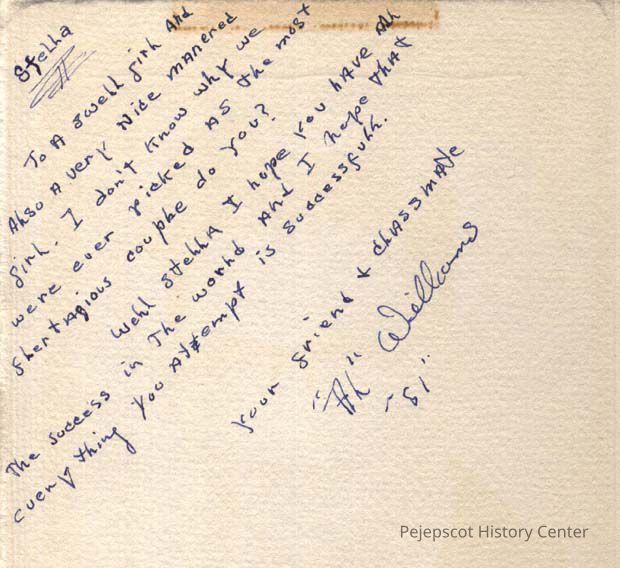 Stella
To A swell girl And
Also A very Nice manered
girl. I don't know why we
were ever picked AS the most
flertagious couple do you?
Well Stella I hope you have All
The success in The world And I hope that
every thing you Attempt is successfull.
your friend & classmate
"Al" Williams
-51"
Pejepscot History Center